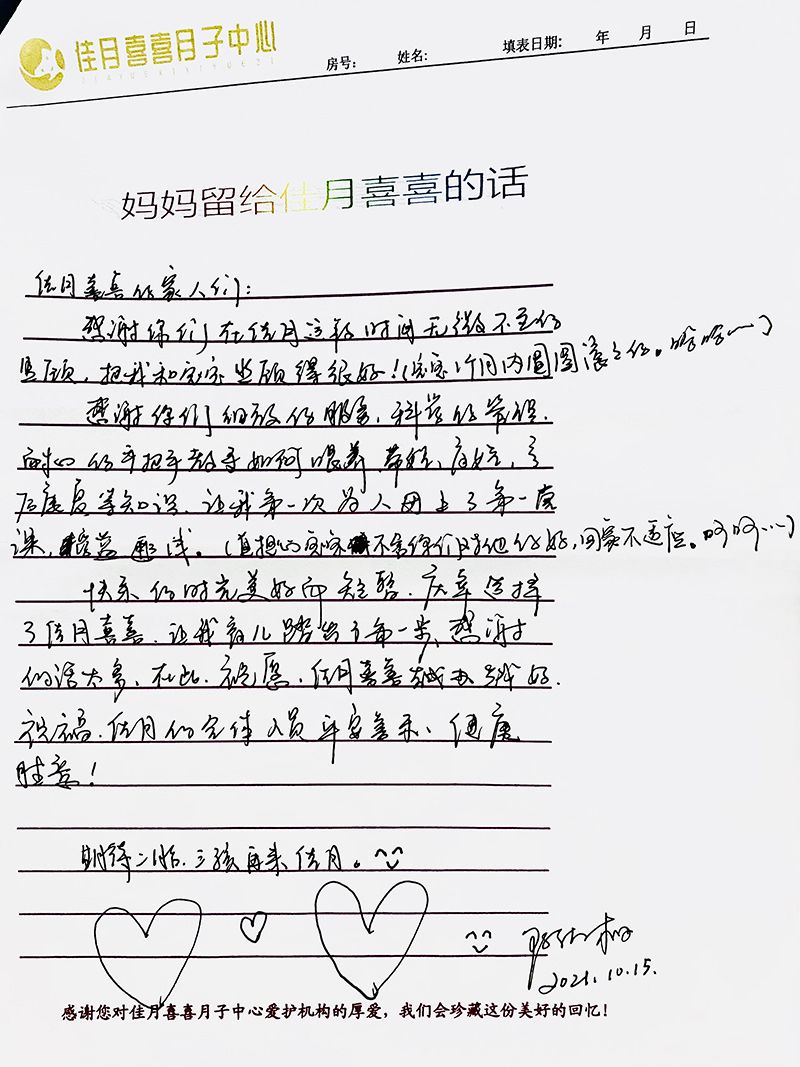 佳月喜喜月子中心
房号: 姓名: 填表日期: 年 月 日
妈妈留给佳月喜喜的话
佳月喜喜的家人们:
感谢你们在佳月这段时间无微不至的
照顾,把我和宝宝照顾得很好!(宝宝1个月内圆圆滚滚的。哈哈~~)
感谢你们细致的服务,科学的管理,
耐心的手把手教导如何喂养、
后康复等知识,让我第一次为人母上了第一堂
课,受益匪浅。(直接的宝宝不舍你们对他的好,回家不适应。呵呵…)
快乐的时光美好而短暂,庆幸选择
了佳月喜喜,让我育儿踏出了第一步,感谢
的话太多,在此,祝愿,佳月喜喜越办越好.
祝福,佳月的全体人员平安喜乐、健康
胜意!
期待二胎、三孩再来佳月。
2021.10.15.
感谢您对佳月喜喜月子中心爱护机构的厚爱,我们会珍藏这份美好的回忆!